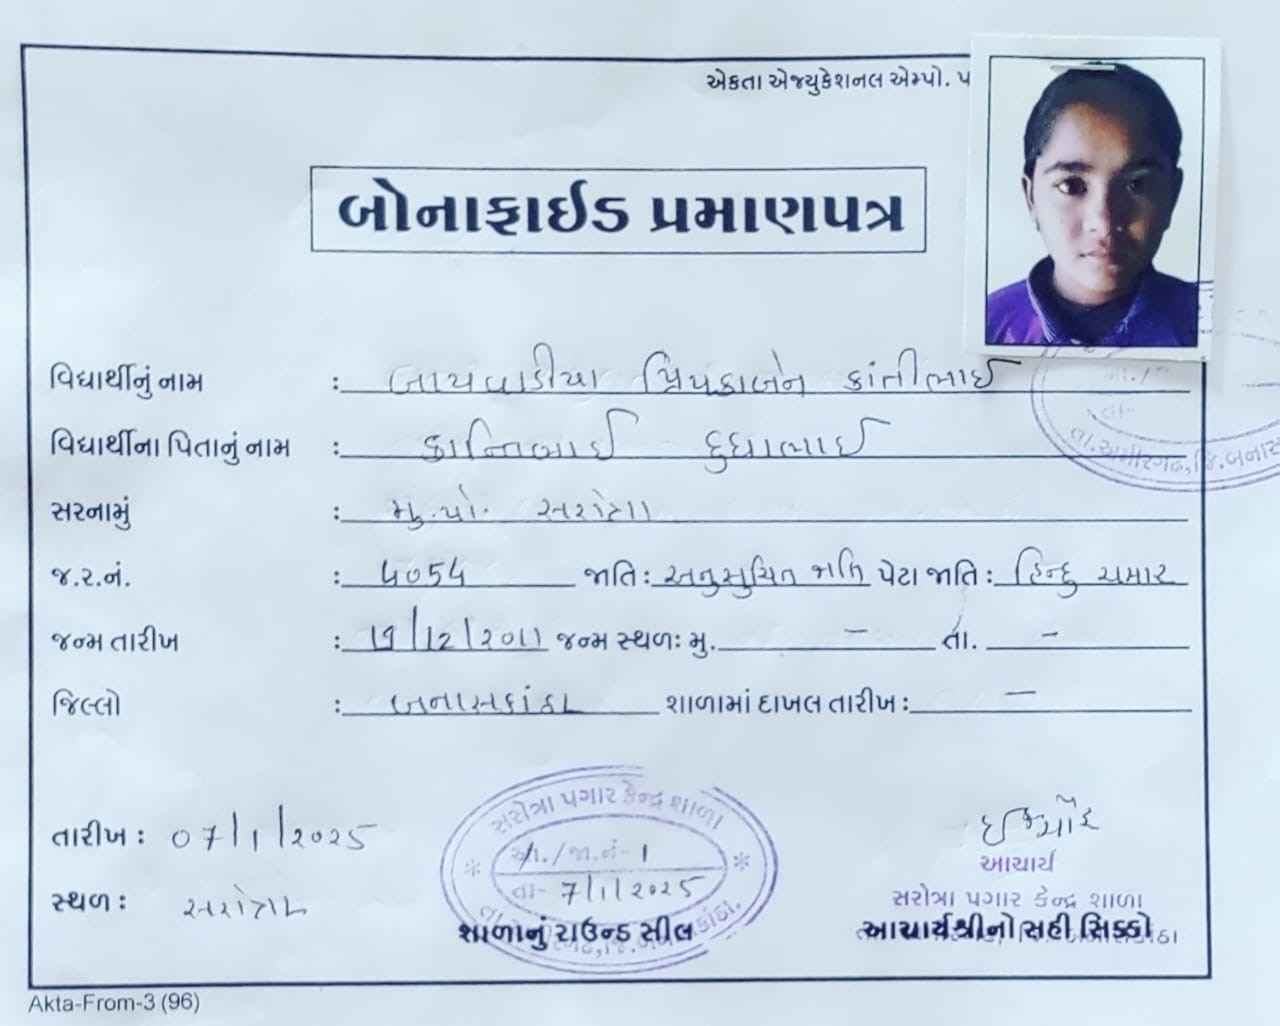 એકતા એજ્યુકેશનલ એમ્પો. પ
બોનાફાઈડ પ્રમાણપત્ર
વિદ્યાર્થીનું નામ : પ્રિયંકાબેન કાંતીભાઈ
વિદ્યાર્થીના પિતાનું નામ : કાન્તિભાઈ દુધાભાઈ
સરનામું : મુ.પો. સરોત્રા
જ.ર.નં. : ૫૦૫૪ જાતિ : અનુસુચિત જાતિ પેટા જાતિ : હિન્દુ ચમાર
જન્મ તારીખ : 19/12/2011 જન્મ સ્થળઃ મુ. - તા. -
જિલ્લો : બનાસકાંઠા શાળામાં દાખલ તારીખ : -
તા.અમીરગઢ,જિ.બનાસ
તારીખ : ૦7/1/2025
સ્થળ : સરોત્રા
સરોત્રા પગાર કેન્દ્ર શાળા
આ./જા.નં- 1
તા- 7/1/2025
શાળાનું રાઉન્ડ સીલ
આચાર્ય
સરોત્રા પગાર કેન્દ્ર શાળા
આચાર્યશ્રીનો સહી સિક્કો
Akta-From-3 (96)